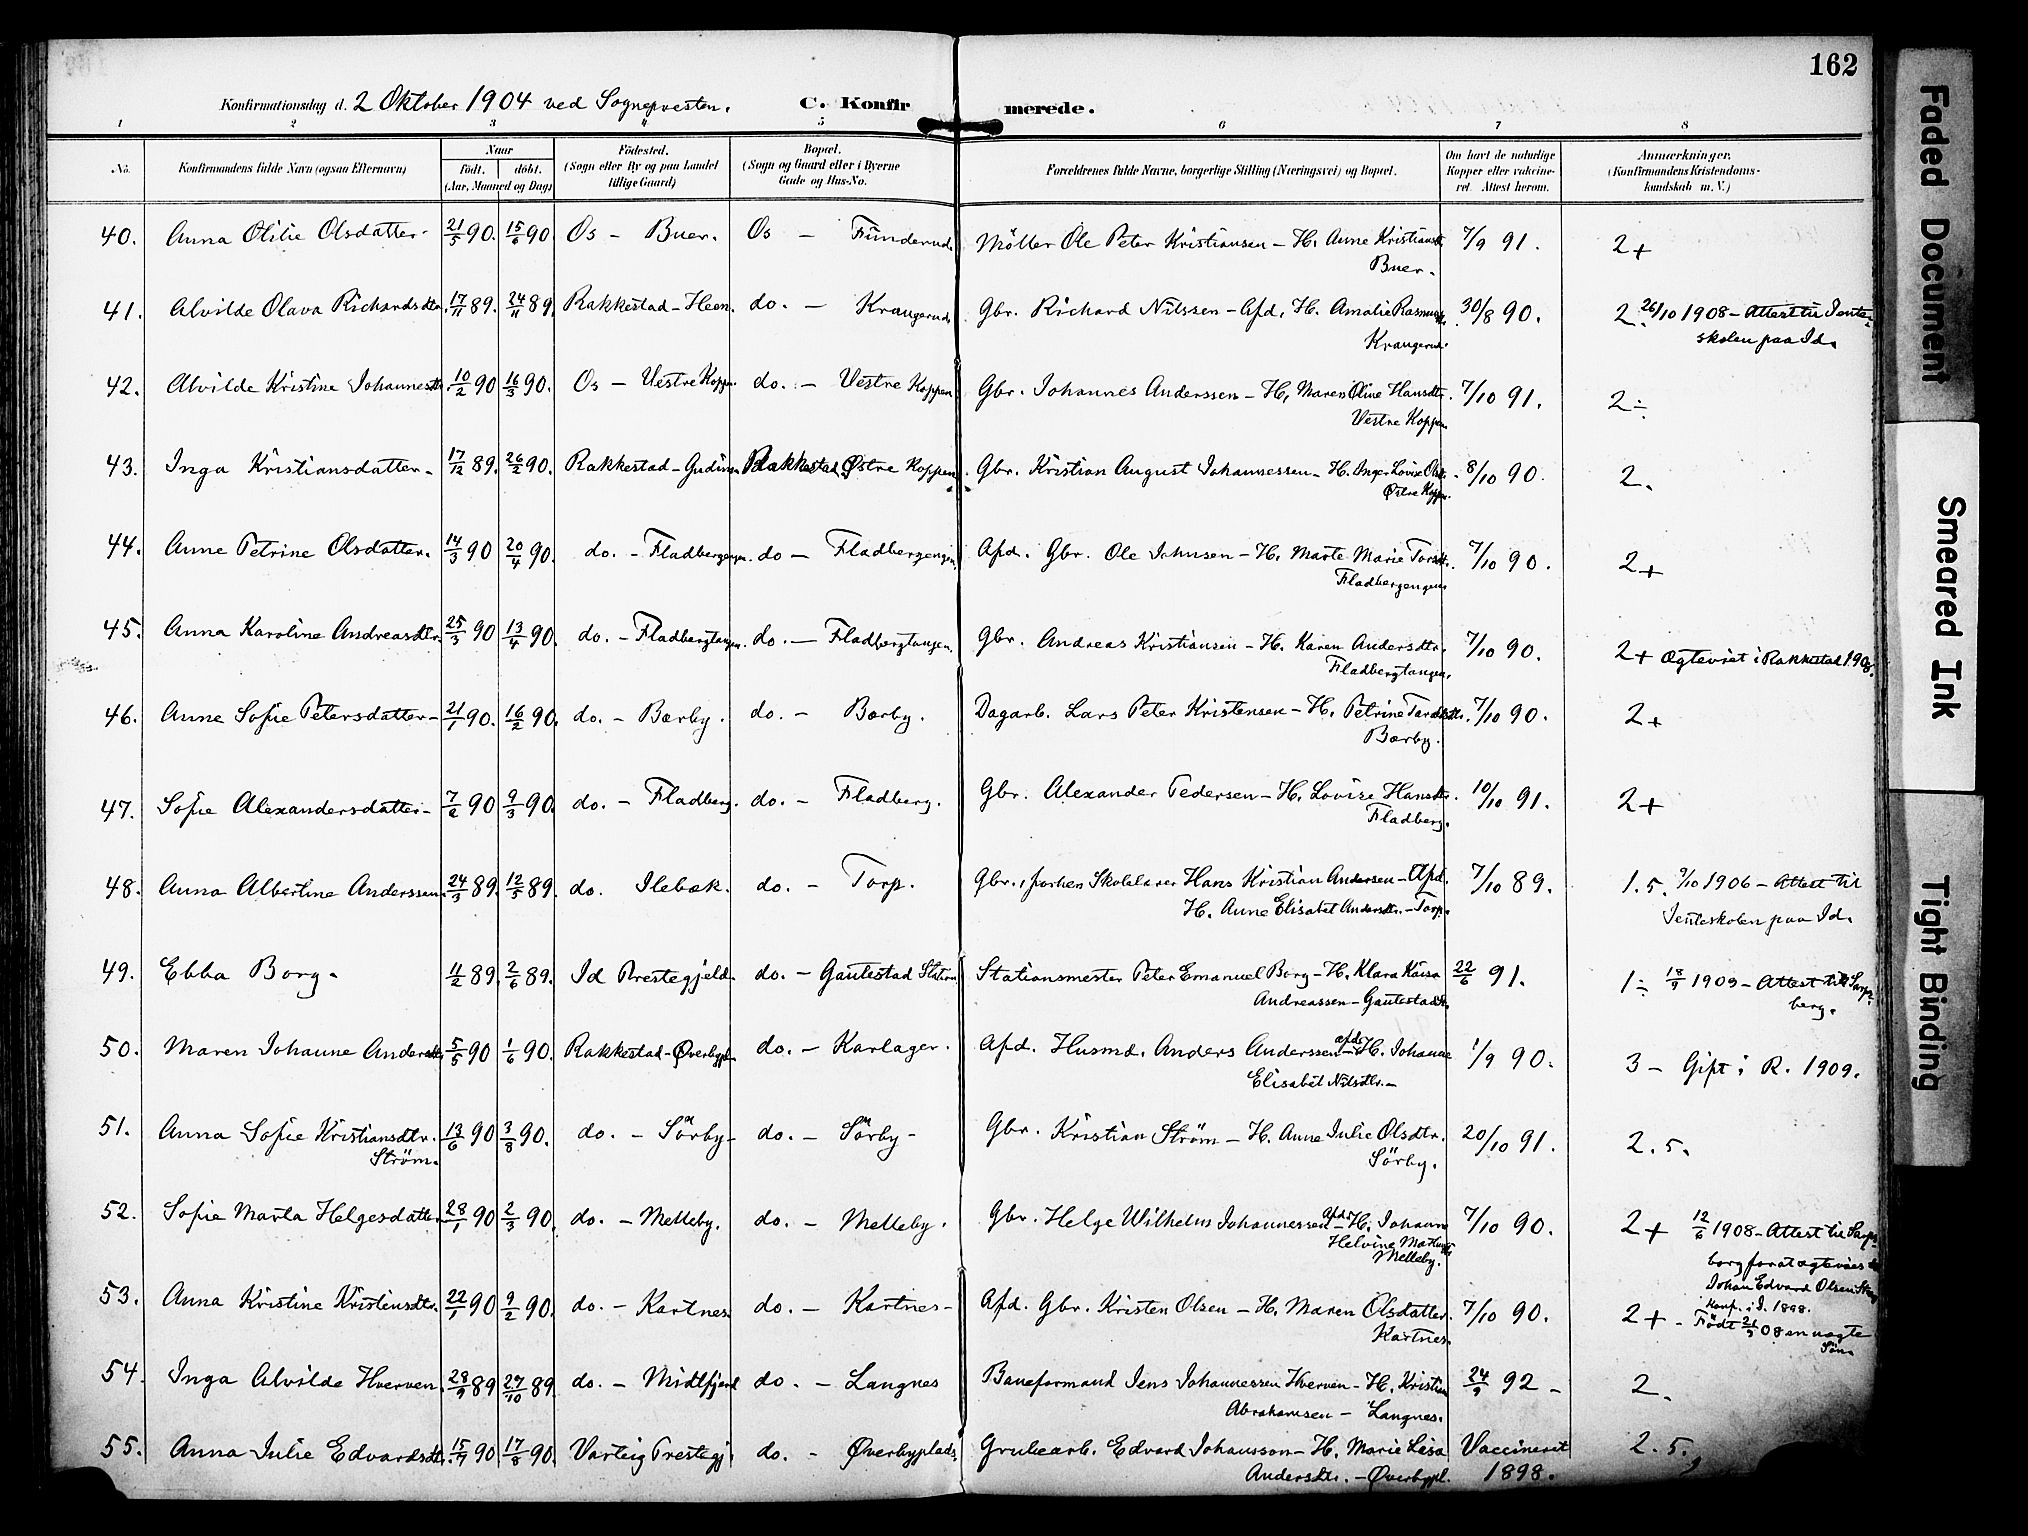 162
Konfirmationsdag d. 2 Oktober 1904 ved Sognepresten. C. Konfir merede.
1 2 3 4 5 6 7 8
No. Konfirmandens fulde Navn (ogsaa Efternavn) Naar født. døbt. (Aar, Maaned og Dag) Fødested. (Sogn eller By og paa Landet tillige Gaard) Bopæl. (Sogn og Gaard eller i Byerne Gade og Hus-No. Forældrenes fulde Navne, borgerlige Stilling (Næringsvei) og Bopæl. Om havt de naturlige Kopper eller vakcineret. Attest herom. Anmærkninger. (Konfirmandens Kristendomskundskab m. V.)
40. Anna Otilie Olsdatter. 21/5 90. 15/6 90 Os – Buer. Os – Funderud. Möller Ole Peter Kristiansen – H. Anne Kristiansdtr. 7/9 91. 2+
Buer.
41. Alvilde Olava Richardsdtr. 17/11 89. 24/11 89. Rakkestad – Heen. do. – Krangerud. Gbr. Richard Nilssen – Afd. H. Amalie Rasmusdtr. 30/8 90. 2. 26/10 1908 – Attest til Jente-
Krangerud. skolen paa Id.
42. Alvilde Kristine Johannesdtr. 10/2 90 16/3 90. Os – Vestre Koppen. do. – Vestre Koppen Gbr. Johannes Anderssen – H. Maren Oline Hansdtr. 7/10 91. 2÷
Vestre Koppen
43. Inga Kristiansdatter – 17/12 89. 26/2 90. Rakkestad – Rakkestad, Østre Koppen. Gbr. Kristian August Johannessen – H. Inger Lovise Olsdtr. 8/10 90. 2.
Østre Koppen.
44. Anne Petrine Olsdatter. 14/3 90 20/4 90. do. – Fladbergengen. do – Fladbergengen. Afd. Gbr. Ole Johnsen – H. Marte Marie Torsdtr. 7/10 90. 2+
Fladbergengen
45. Anna Karoline Andreasdtr. 25/3 90 13/4 90. do. – Fladbergtangen. do. – Fladbergtangen. Gbr. Andreas Kristiansen – H. Karen Andersdtr. 7/10 90. 2+ Ægteviet i Rakkestad 1908.
Fladbergtangen.
46. Anne Sofie Petersdatter – 21/1 90. 16/2 90. do. – Bærby. do. – Bærby. Dagarb. Lars Peter Kristensen – H. Petrine 7/10 90. 2+
Bærby.
47. Sofie Alexandersdatter – 7/2 90 9/3 90. do. – Fladberg. do. – Fladberg. Gbr. Alexander Pedersen – H. Lovise Hansdtr. 10/10 91. 2+
Fladberg.
48. Anna Albertine Anderssen. 24/3 89. 12/5 89. do. Ilebæk. do. – Torp. Gbr., forhen Skolelærer Hans Kristian Andersen – Afd. 7/10 89. 1.5. 7/10 1906 – Attest til
H. Anne Elisabet Andersdtr. – Torp. Jenteskolen paa Id.
49. Ebba Borg. 4/2 89. 2/6 89. Id Prestegjeld. do. – Gautestad Station Stationsmester Peter Emanuel Borg – H. Klara Kaisa 22/6 91. 1÷ 18/9 1909 – Attest til Sarps-
Andreassen – Gautestad st. berg.
50. Maren Johanne Andersdtr. 5/5 90 1/6 90. Rakkestad – Øverbypl. do. – Karlager. Afd. Husmd. Anders Anderssen – afd. H. Johanne 1/9 90. 3 – Gift i R. 1909.
Elisabet Nilsdtr. –
51. Anna Sofie Kristiansdtr. 13/6 90 3/8 90. do. – Sörby – do. – Sörby – Gbr. Kristian Strøm – H. Anne Julie Olsdtr. 20/10 91. 2.5.
Strøm. Sörby.
52. Sofie Marta Helgesdatter 28/1 90 2/3 90. do. – Melleby. do. – Melleby. Gbr. Helge Wilhelm Johannessen – afd. H. Johanne 7/10 90. 2+ 12/6 1908 – Attest til Sarps-
Helvine
Melleby. borg for at ægtevies
Johan Edvard Olsen
Konf. i I. 1898.
53. Anna Kristine Kristensdtr. 22/1 90 9/2 90. do. – Kartnes do. – Kartnes – Afd. Gbr. Kristen Olsen – H. Maren Olsdatter. 7/10 90. 2+ – Født 08 en uægte
Kartnes. Søn.
54. Inga Alvilde Hverven. 28/9 89 27/10 89. do. – Midtfjeld do. – Langnes Baneformand Jens Johannessen Hverven – H. Kristine 24/9 92 – 2.
Abrahamsen – Langnes.
55. Anna Julie Edvardsdtr. 15/7 90 17/8 90. Varteig Prestegj. do. – Øverbyplads. Grubearb. Edvard Johansson – H. Marie Lisa Vaccineret 2.5.
Andersdtr. – Øverbypl. 1898.
Faded Document
Smeared Ink
Tight Binding